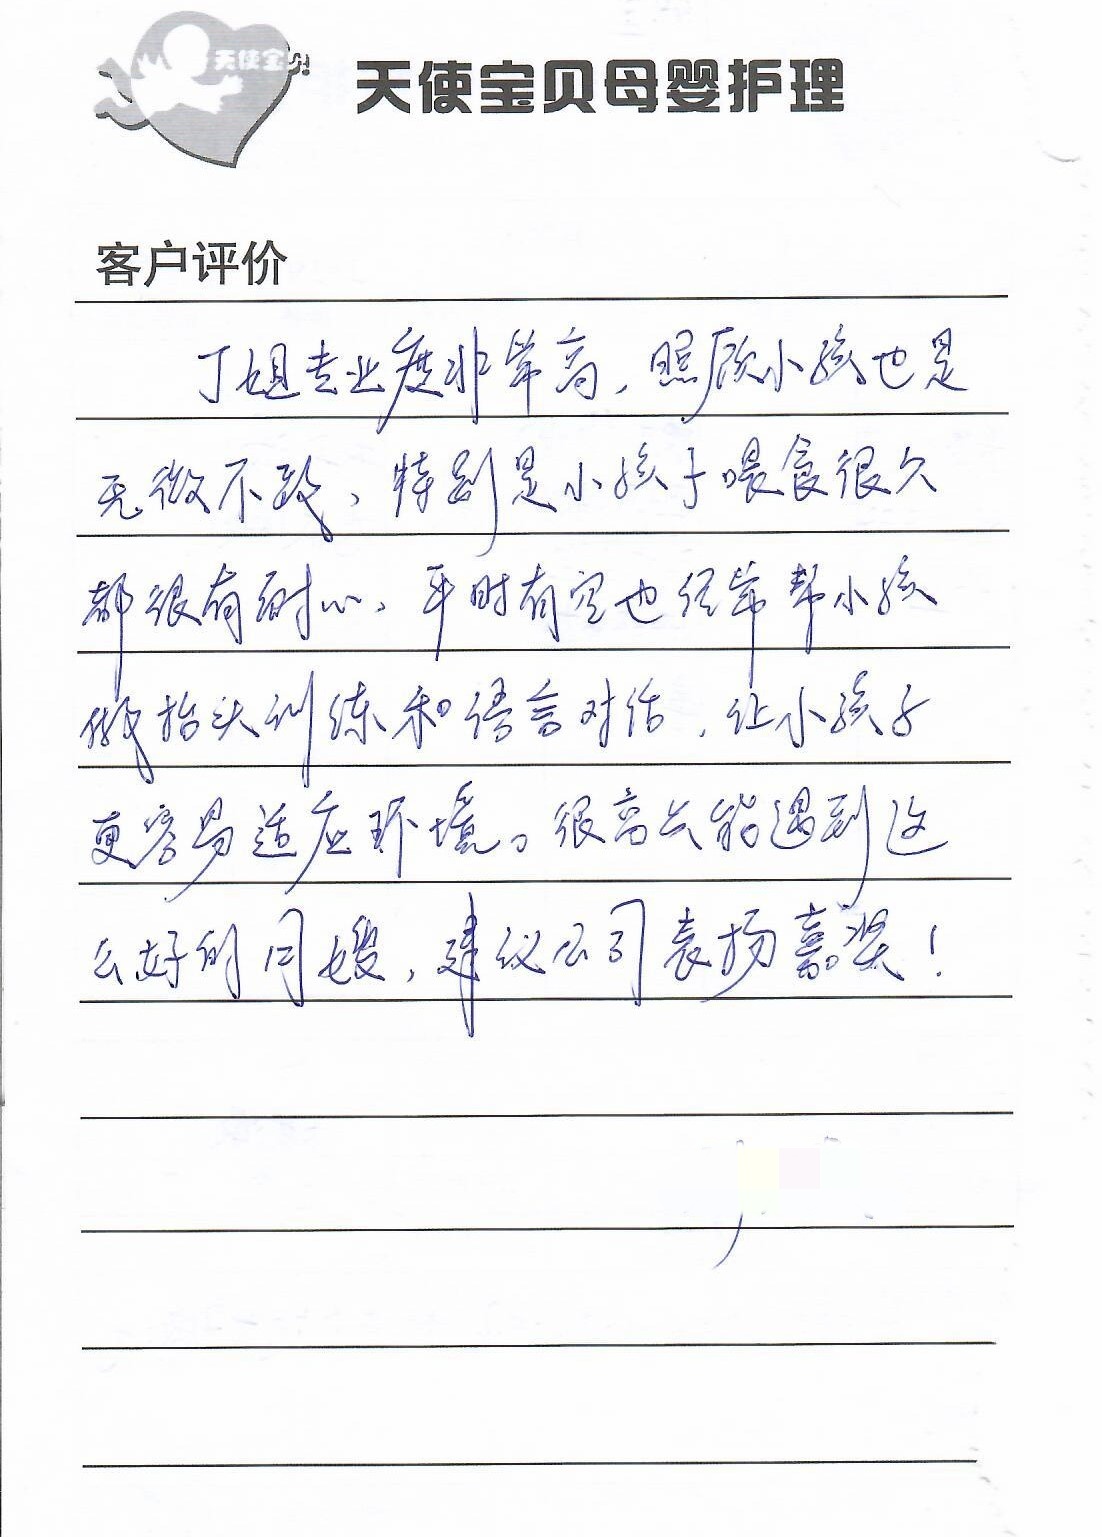 天使宝贝
天使宝贝母婴护理
客户评价
丁姐专业度非常高，照顾小孩也是
无微不致，特别是小孩子喂食很久
都很有耐心，平时有空也经常帮小孩
做抬头训练和语言对话，让小孩子
更容易适应环境。很高兴能遇到这
么好的月嫂，建议公司表扬嘉奖！